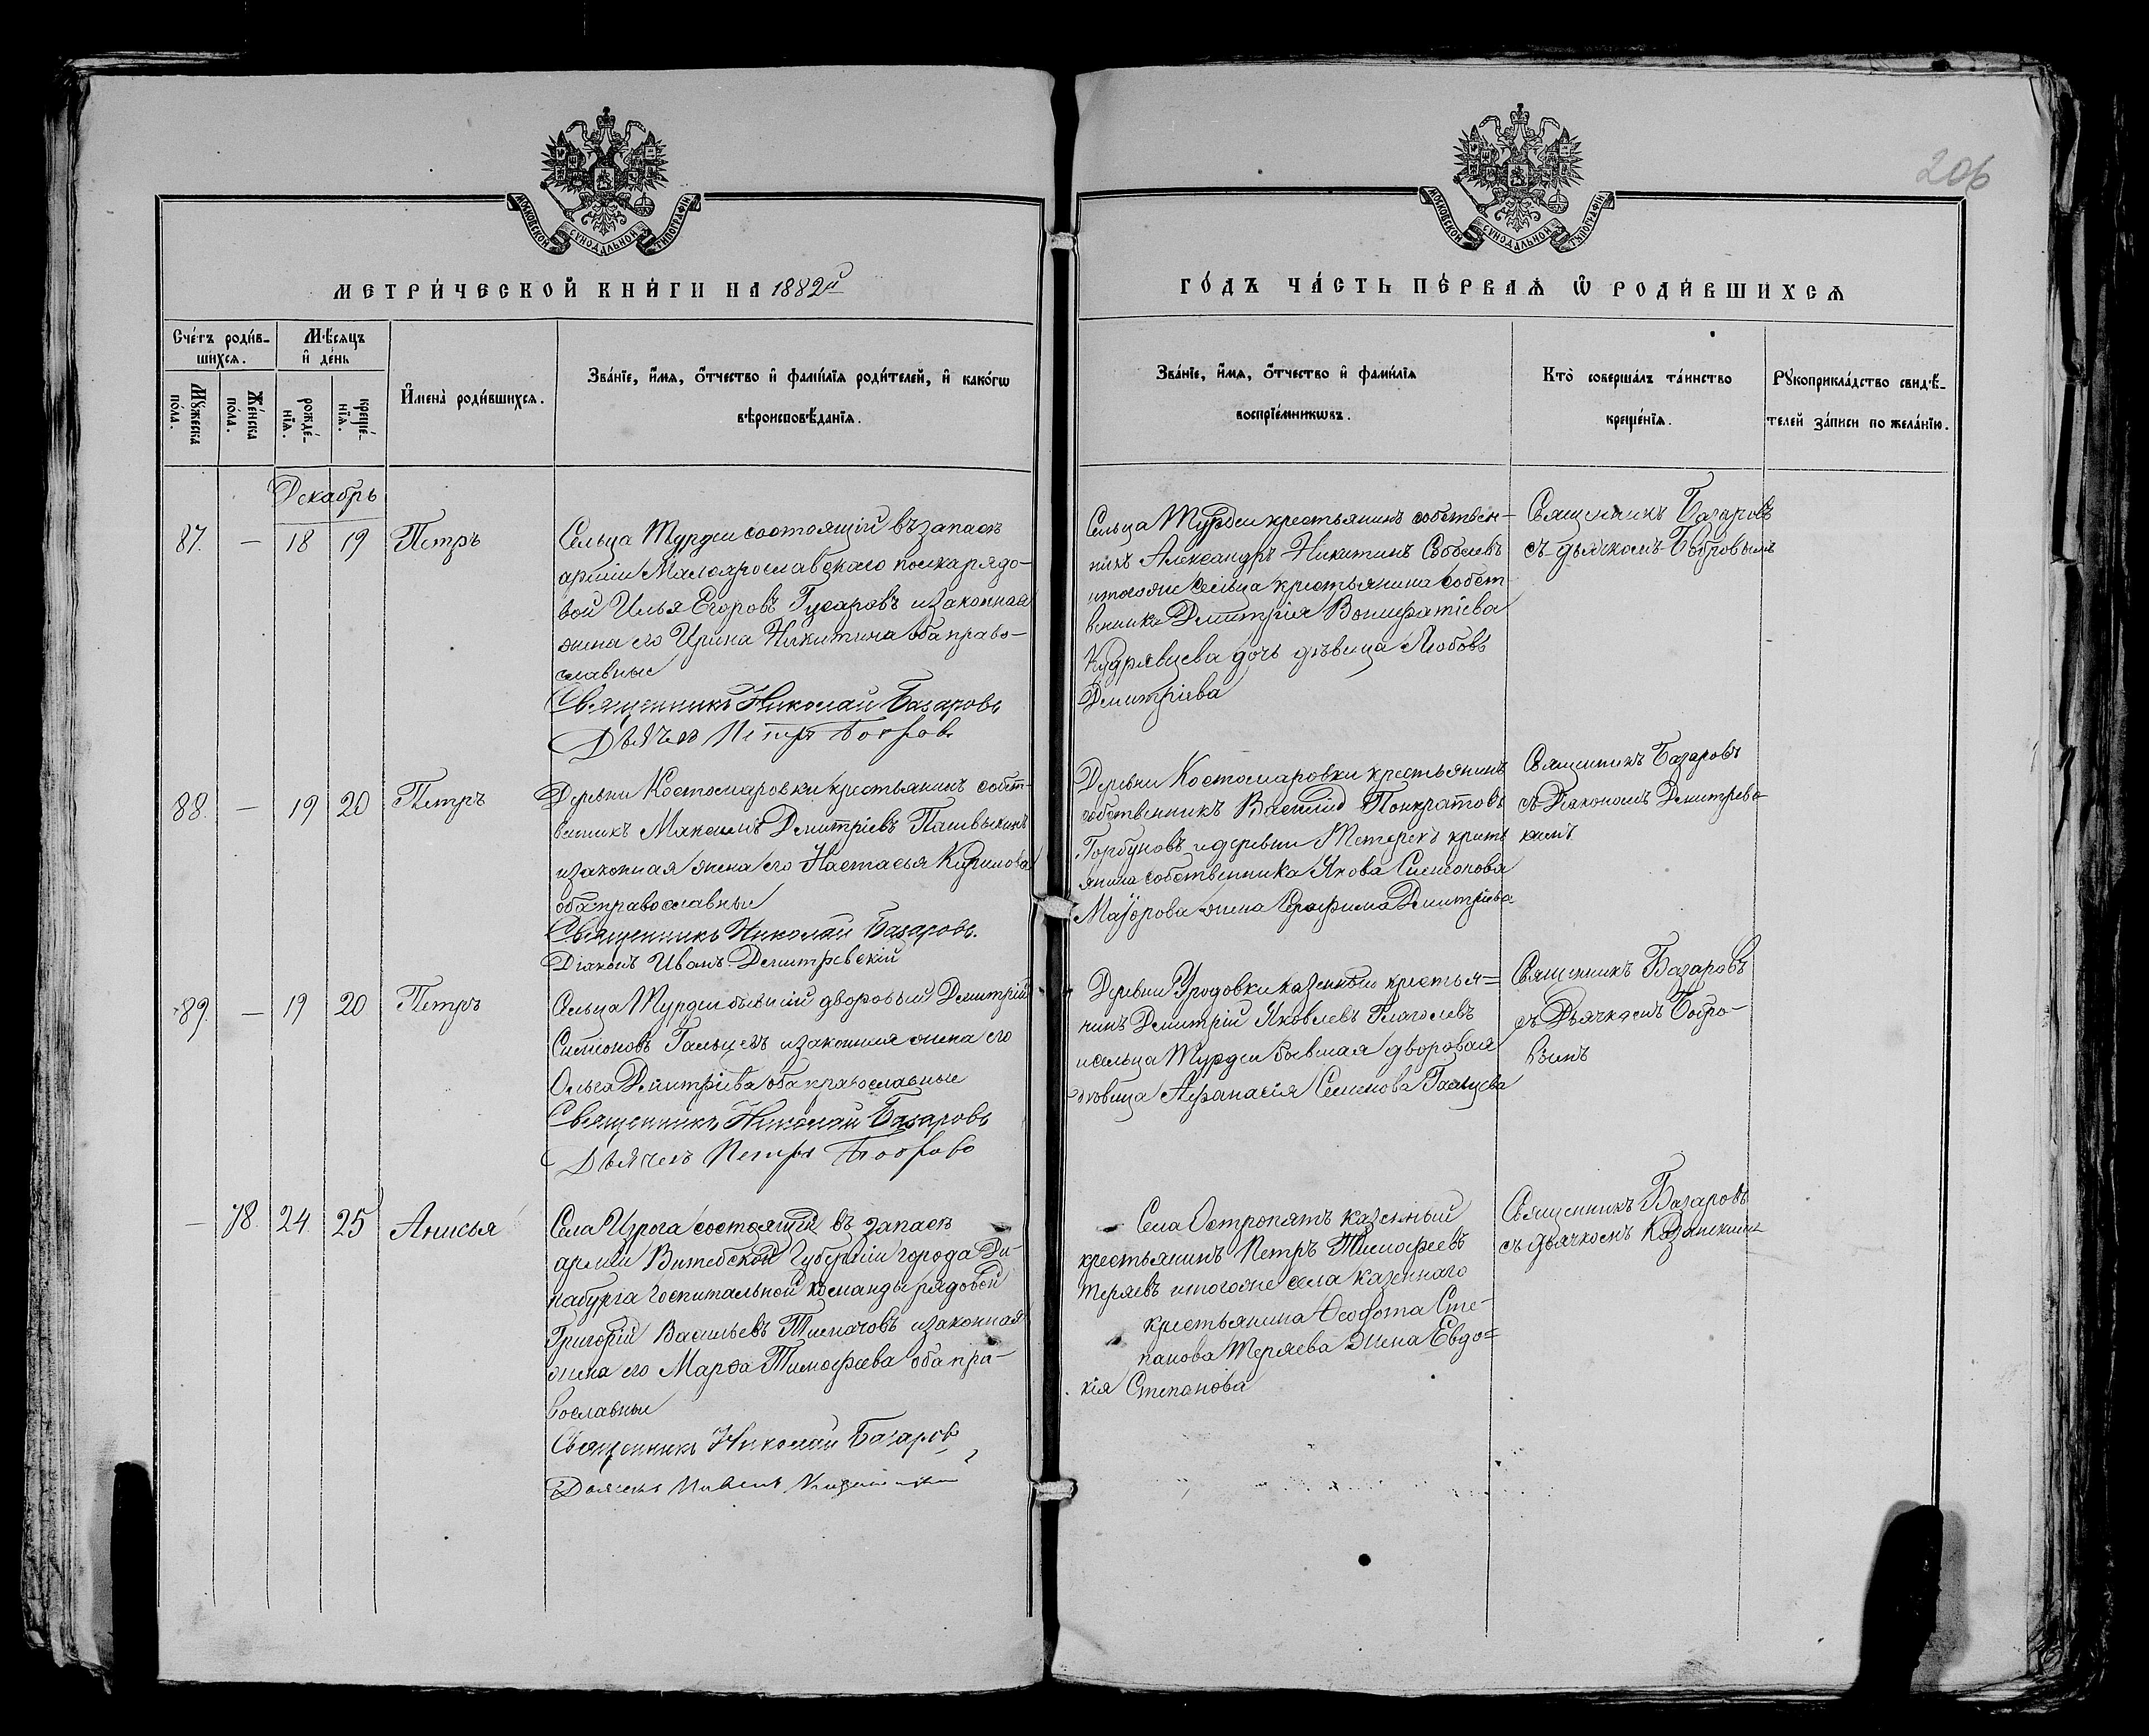 206
МОСКОВСКОЙ СѴНОДАЛЬНОЙ ТИПОГРАФІИ
МОСКОВСКОЙ СѴНОДАЛЬНОЙ ТИПОГРАФІИ
МЕТРИ́ЧЕСКОЙ КНИ́ГИ НА 1882й
ГО́ДЪ ЧА́СТЬ ПЕ́РВАѦ Ѽ РОДИ́ВШИХСѦ
Сче́тъ роди́в-
шихся.
Мѣ́сяцъ
и҆ де́нь
Мꙋ́жеска
по́ла.
Же́нска
по́ла.
рожде́-
нїя.
креще́-
нїя.
И҆мена̀ роди́вшихся.
Зва́нїе, и҆́мя, ѻ҆́тчество и҆ фами́лїя роди́телей, и҆ како́гѡ
вѣроисповѣ́данїя.
Зва́нїе, и҆́мя, ѻ҆́тчество и҆ фами́лїя
воспрїе́мникѡвъ.
Кто̀ соверша́лъ та́инство
креще́нїя.
Рꙋкоприкла́дство свидѣ́-
телей за́писи по жела́нїю.
Декабрь
87. — 18 19 Петръ
Сельца Турдеи состоящій въ запасѣ
арміи Малоярославскаго полка рядо-
вой Илья Егоровъ Гусаровъ и законная
жена его Ирина Никитина оба право-
славные
Священникъ Николай Базаровъ
Дьячекъ Петръ Бобровъ
Сельца Турдеи крестьянинъ собствен-
никъ Александръ Никитинъ Соболевъ
и тогоже сельца крестьянина собст
венника Димитрія Вонифатіева
Кудрявцева дочь дѣвица Любовь
Димитріева
Священникъ Базаровъ
съ дьячкомъ Бобровымъ
88. — 19 20 Петръ
Деревни Костомаровки крестьянинъ собст-
венникъ Максимъ Димитріевъ
и законная жена его Настасья
оба православные
Священникъ Николай Базаровъ.
Діаконъ Иванъ Димитревскій
Деревни Костомаровки крестьянинъ
собственникъ Василій Понкратовъ
Горбуновъ и деревни Тетерекъ кресть
янина собственника Якова Симеонова
Маіорова жена Серафима Димитріева
Священникъ Базаровъ
съ Діакономъ Димитрево
кимъ
89. — 19 20 Петръ
Сельца Турдеи бывшій дворовый Димитрій
Симеоновъ Гальцевъ и законная жена его
Ольга Димитріева оба православные
Священникъ Николай Базаровъ
Дьячекъ Петръ Бобровъ
Деревни Уродовки казенный крестья=
нинъ Димитрій Яковлевъ Глаголевъ
и сельца Турдеи бывшая дворовая
дѣвица Афанасія Семенова Гальцева
Священникъ Базаровъ
съ Дьячкомъ Бобро-
вымъ
— 78. 24 25 Анисья
Села Изрога состоящій въ запасѣ
арміи Витебской Губерніи города Ди-
набурга Госпитальной команды рядовой
Григорій Васильевъ и законная
жена его Марѳа Тимофеева оба пра-
вославные
Священникъ Николай Базаровъ
Села Остропятъ казенный
крестьянинъ Петръ Тимофеевъ
Теряевъ и тогоже села казеннаго
крестьянина Ѳеофота Сте-
панова Теряева жена Евдо=
кія Степанова
Священникъ Базаровъ
съ дьячкомъ Казанскимъ